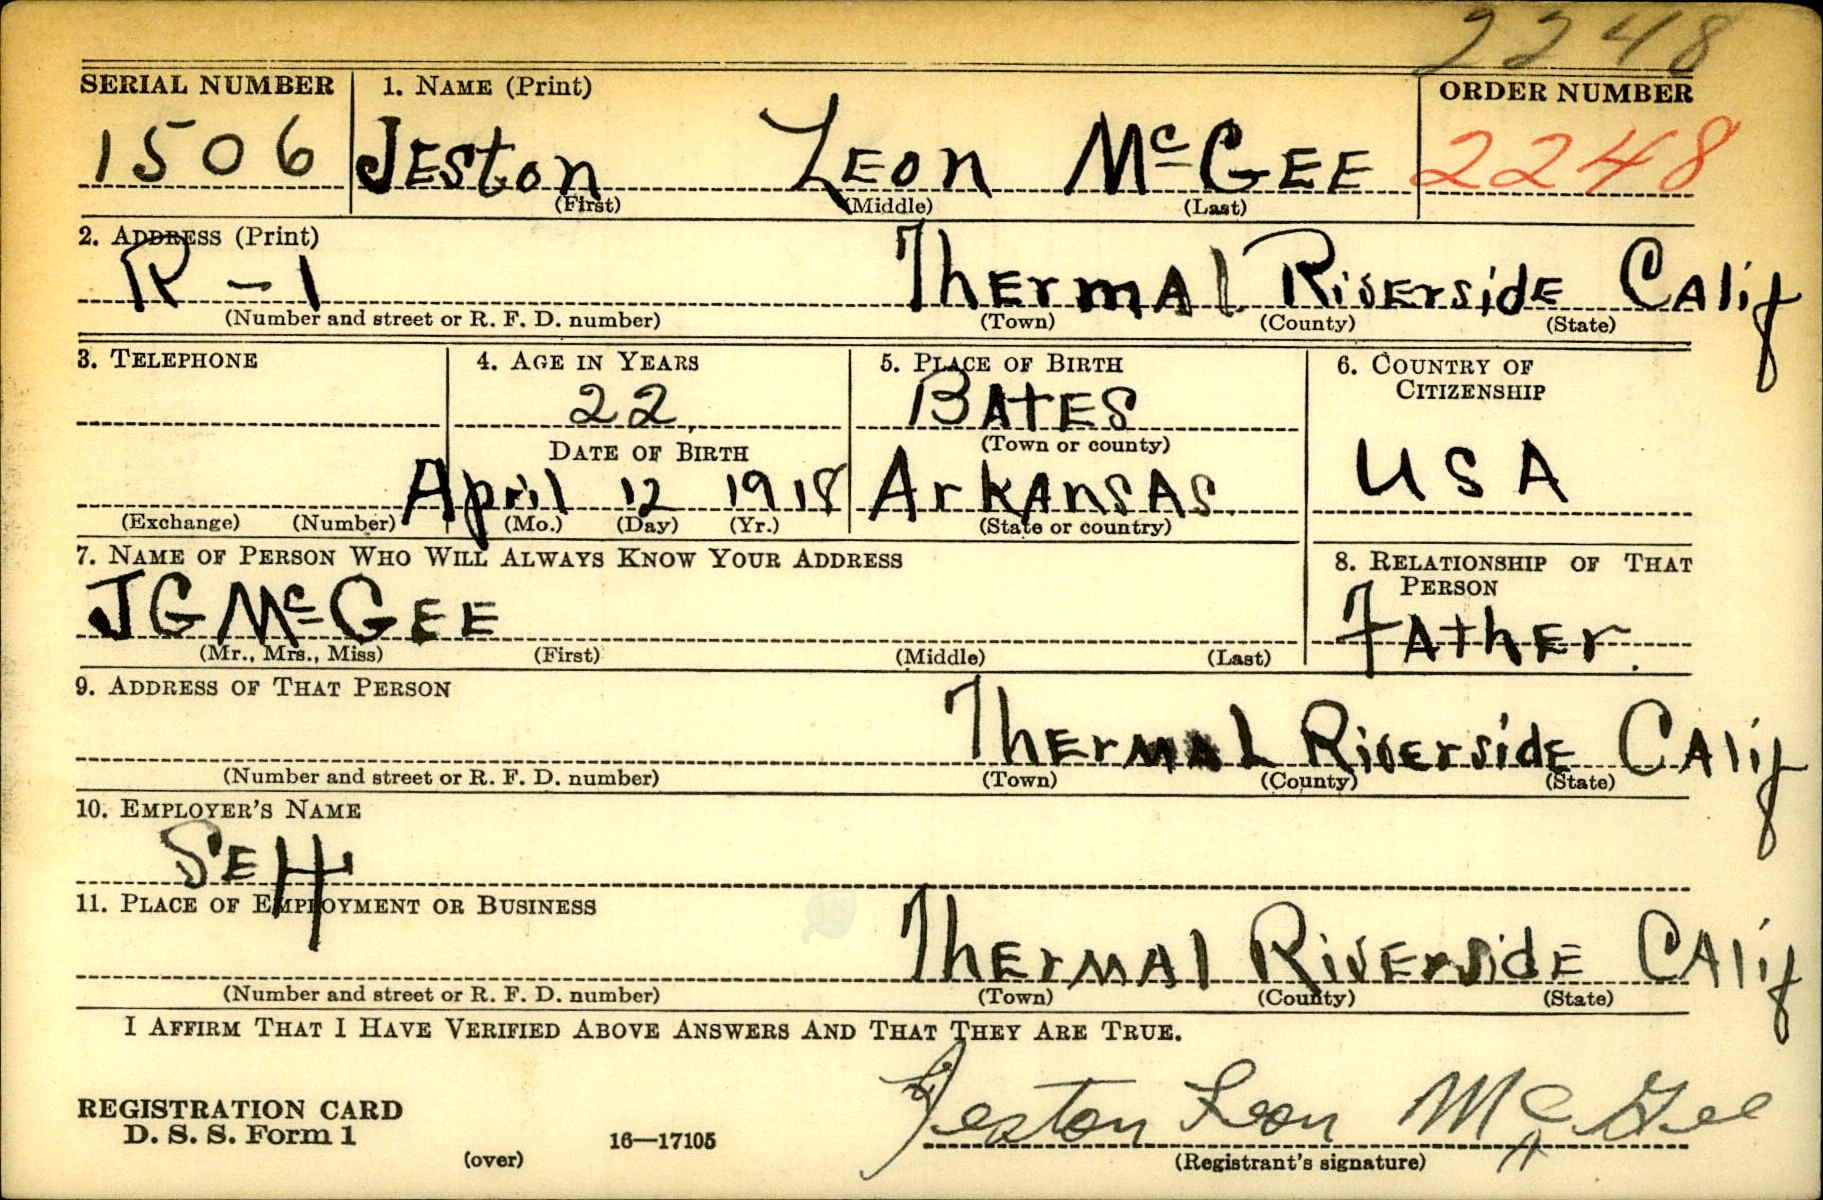 2248
SERIAL NUMBER 1. NAME (Print) ORDER NUMBER
1506 JEston LEon McGEE 2248
(First) (Middle) (Last)
2. ADDRESS (Print)
R-1 ThErmAl RivErsidE CAlif
(Number and street or R. F. D. number) (Town) (County) (State)
3. TELEPHONE 4. AGE IN YEARS 5. PLACE OF BIRTH 6. COUNTRY OF CITIZENSHIP
22 BAtES
DATE OF BIRTH (Town or county)
April 12 1918 ArkAnSAS. USA
(Exchange) (Number) (Mo.) (Day) (Yr.) (State or country)
7. NAME OF PERSON WHO WILL ALWAYS KNOW YOUR ADDRESS 8. RELATIONSHIP OF THAT PERSON
JG McGEE FAthEr.
(Mr., Mrs., Miss) (First) (Middle) (Last)
9. ADDRESS OF THAT PERSON
ThErmAL RivErsidE CAlif
(Number and street or R. F. D. number) (Town) (County) (State)
10. EMPLOYER'S NAME
SElf
11. PLACE OF EMPLOYMENT OR BUSINESS
ThErmAl RivErsidE CAlif
(Number and street or R. F. D. number) (Town) (County) (State)
I AFFIRM THAT I HAVE VERIFIED ABOVE ANSWERS AND THAT THEY ARE TRUE.
Jeston Leon McGee
REGISTRATION CARD
D. S. S. Form 1 16—17105
(over) (Registrant's signature)